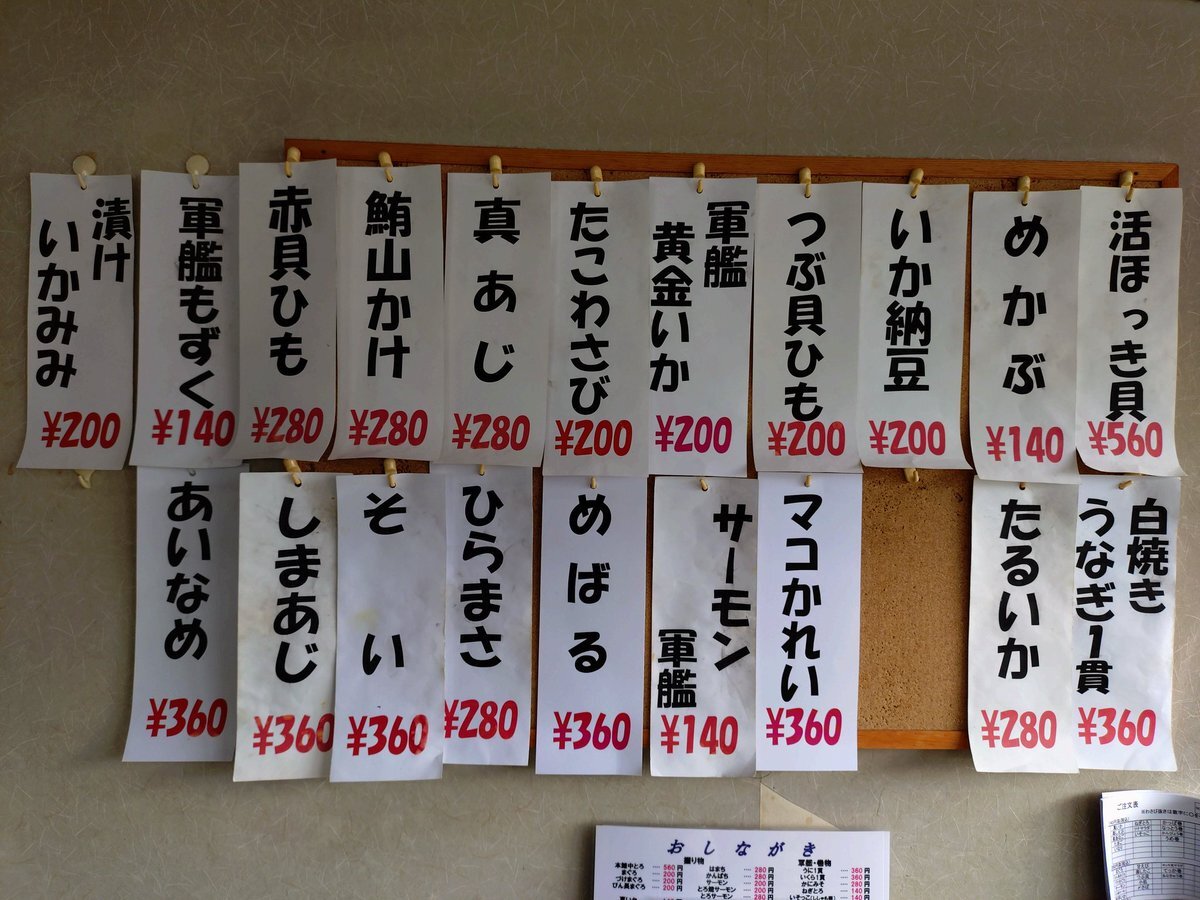 活ほっき貝
¥560
めかぶ
¥140
いか納豆
¥200
つぶ貝ひも
¥200
軍艦
黄金いか
¥200
たこわさび
¥200
真あじ
¥280
鮪山かけ
¥280
赤貝ひも
¥280
軍艦もずく
¥140
漬け
いかみみ
¥200
白焼き
うなぎ1貫
¥360
たるいか
¥280
マコかれい
¥360
サーモン
軍艦
¥140
めばる
¥360
ひらまさ
¥280
そい
¥360
しまあじ
¥360
あいなめ
¥360
おしながき
握り物
本鮪中とろ ‥‥ 560円
まぐろ ‥‥ 200円
づけまぐろ ‥‥ 200円
びん長まぐろ ‥‥ 200円
はまち ‥‥ 280円
かんぱち ‥‥ 280円
サーモン ‥‥ 200円
とろ鮭サーモン ‥‥ 200円
とろサーモン ‥‥ 280円
軍艦・巻物
うに1貫 ‥‥ 360円
いくら1貫 ‥‥ 360円
かにみそ ‥‥ 280円
ねぎとろ ‥‥ 140円
ご注文表